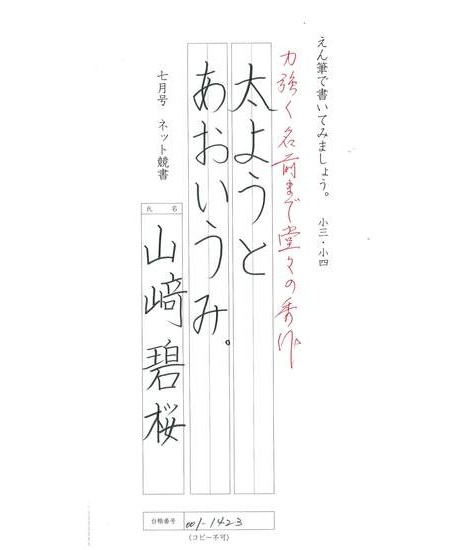 えん筆で書いてみましょう。 小三・小四
力強く名前まで堂々の秀作
太ようと
あおいうみ。
七月号 ネット競書
氏名
山﨑碧桜
台帳番号 001-1423
(コピー不可)